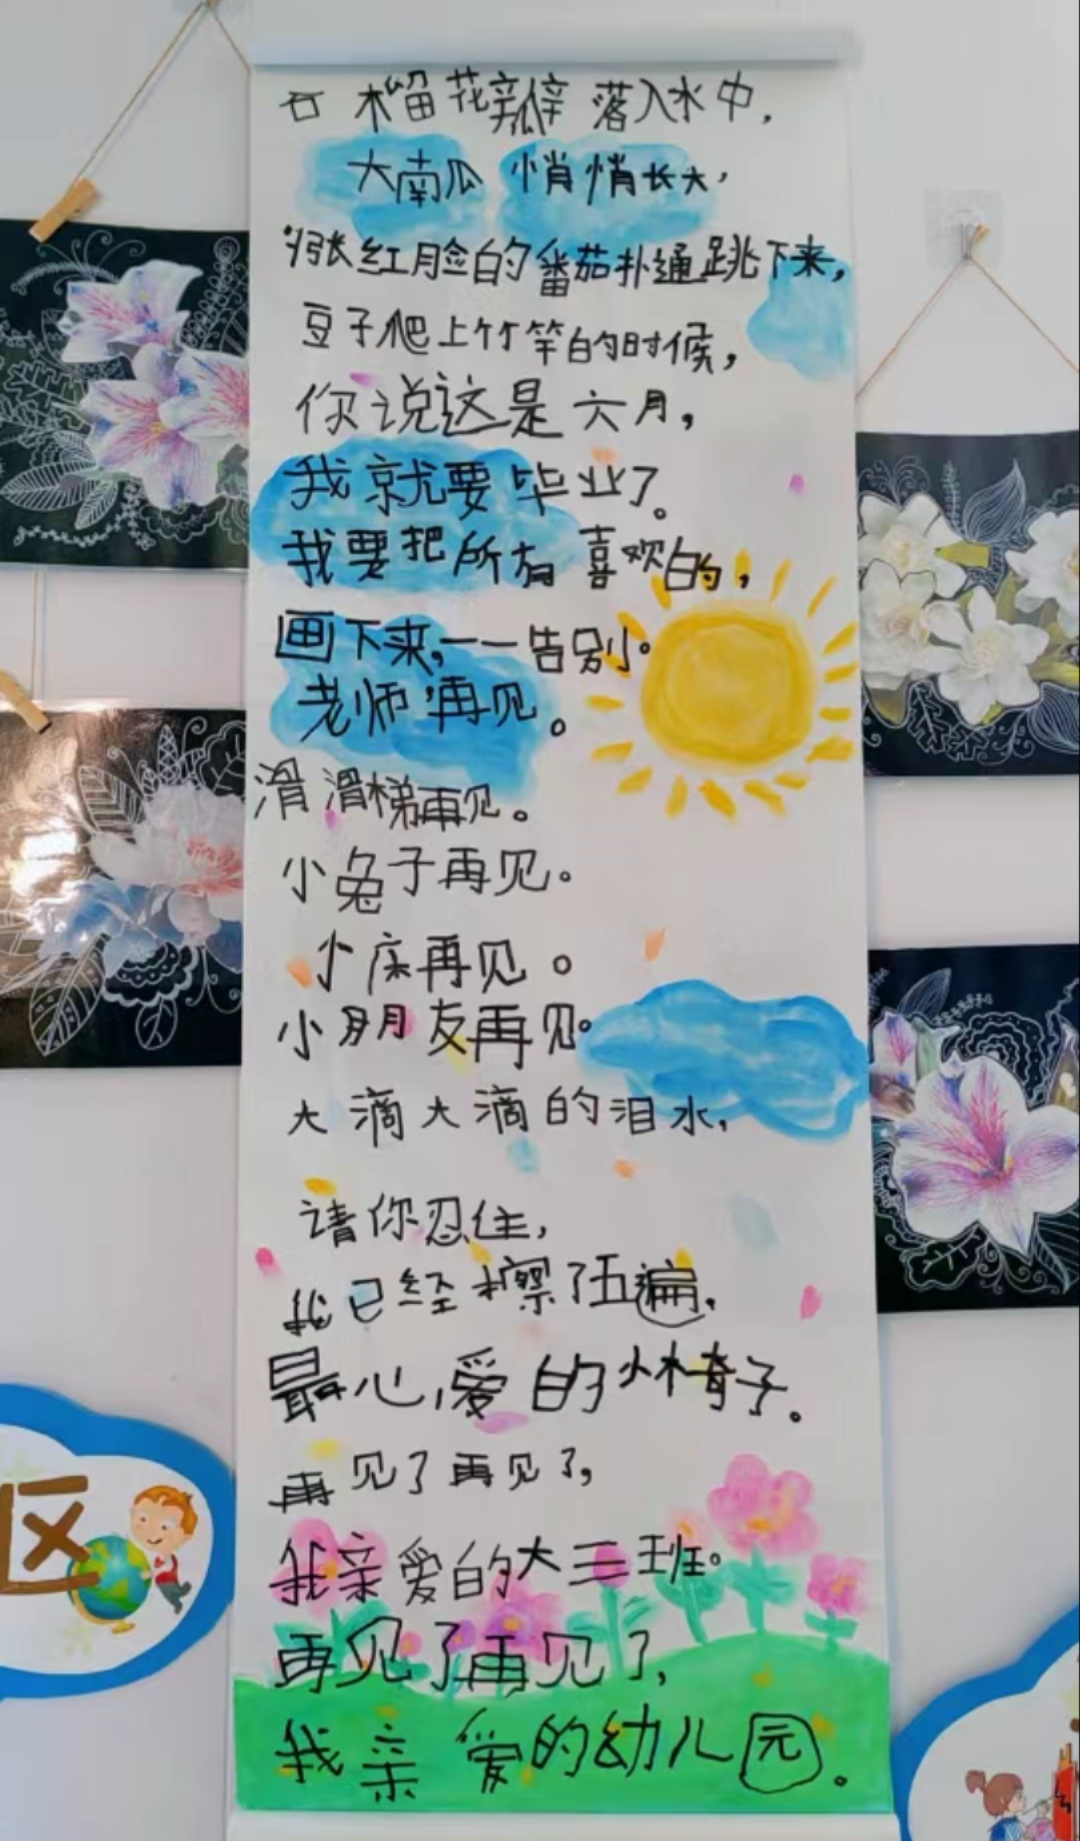 石榴花瓣落入水中,
大南瓜悄悄长大,
涨红脸的番茄扑通跳下来,
豆子爬上竹竿的时候,
你说这是六月,
我就要毕业了。
我要把所有喜欢的,
画下来,一一告别。
老师,再见。
滑滑梯再见。
小兔子再见。
小床再见。
小朋友再见。
大滴大滴的泪水,
请你忍住,
我已经擦了五遍,
最心爱的小椅子。
再见了再见了,
我亲爱的大三班。
再见了再见了,
我亲爱的幼儿园。
区